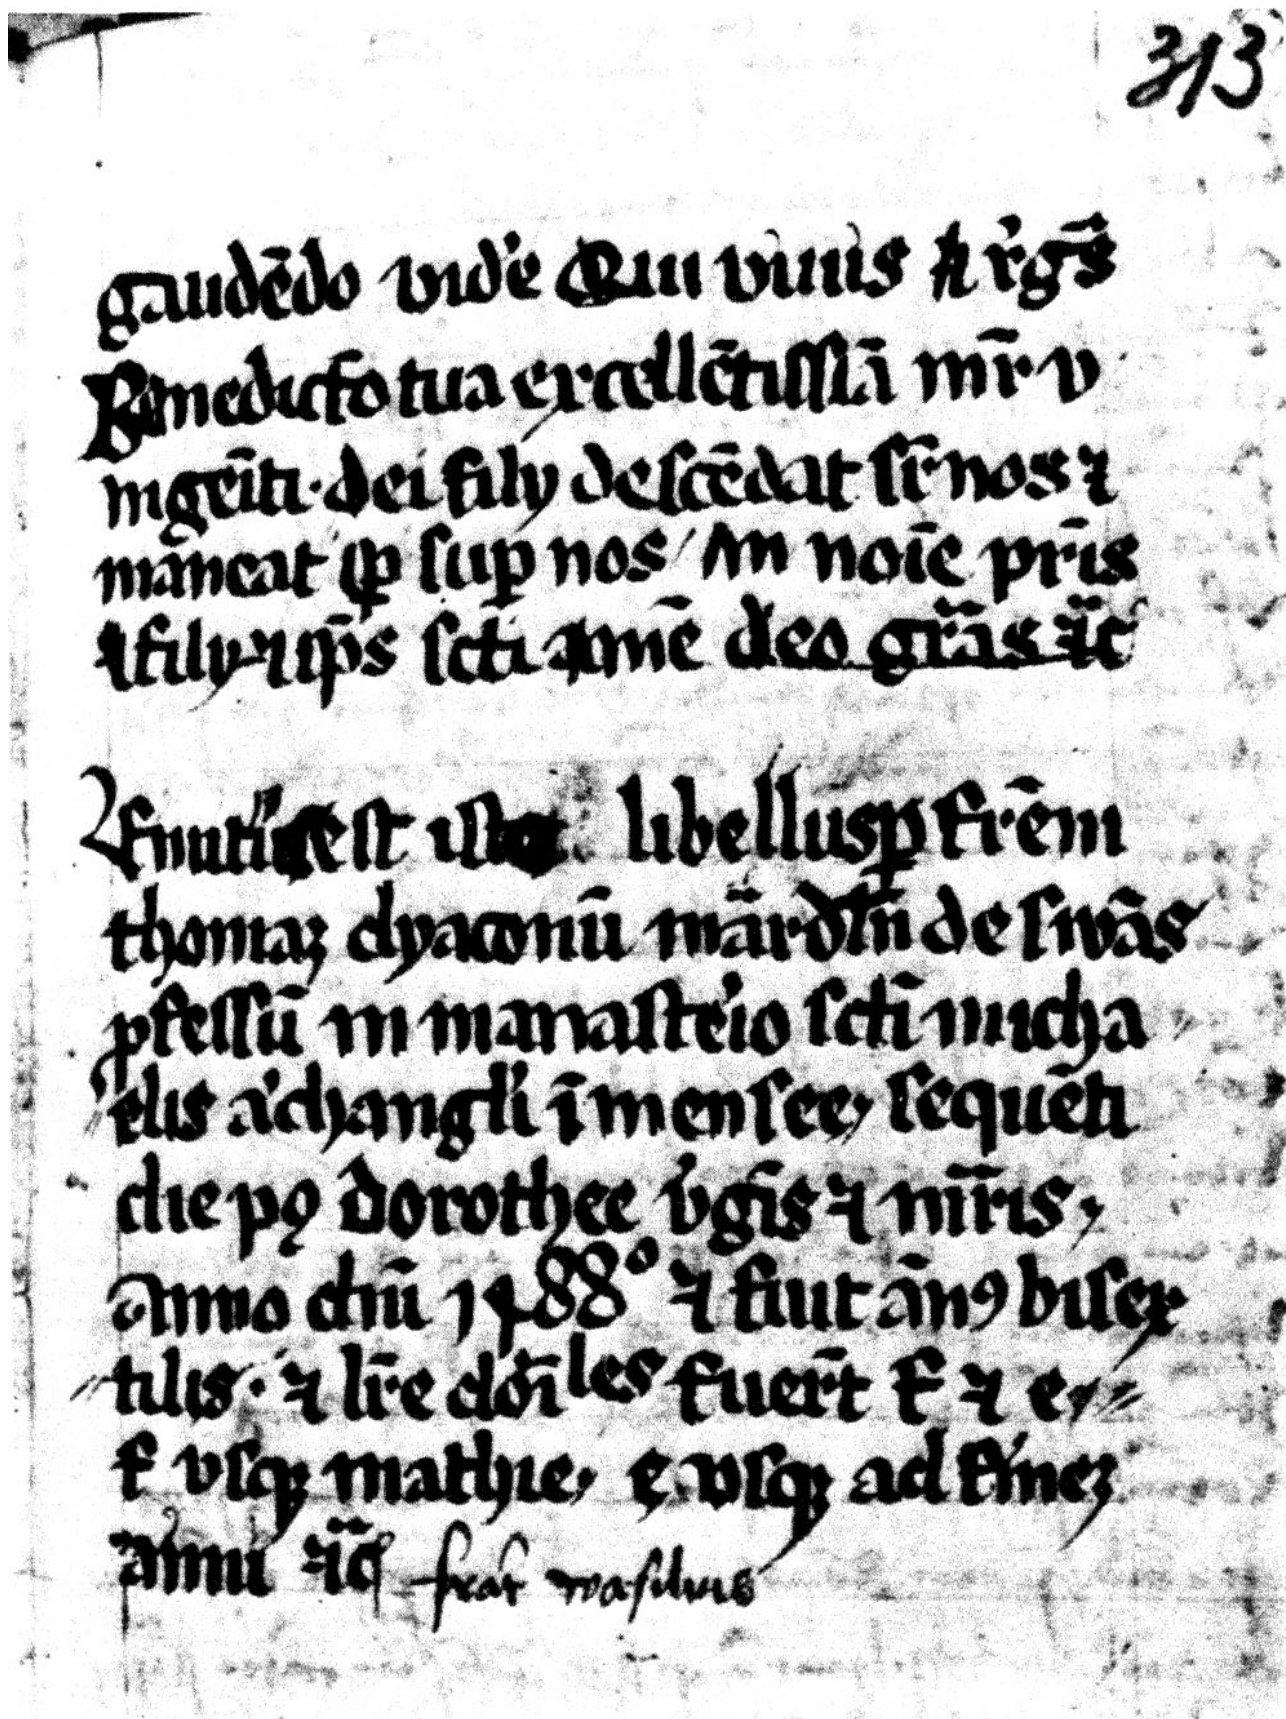 313
gaudēdo vidʼe Qui viuis ⁊ rʼgs̄
Benedictō tua excellētissīa mr̄ v
ingēiti · dei filij descēdat sr̄ nos ⁊
maneat sꝑ suꝑ nos / In noīe pr̄is
⁊ filij ⁊ sp̄s sct̄i amē deo gr̄as ⁊c̄
finitʼ est iste libellus ꝑ fr̄em
thomaꝫ dyaconū de siwās
ꝓfessū in manasteʼio sct̄i micha
elis aʼchangl̄i ī mensee, sequēti
die pꝰ dorothee vʼgīs ⁊ mr̄is,
anno dn̄i 1488° ⁊ fuit ānꝰ bisex
tilis · ⁊ lr̄e dōiles fuer̄t f ⁊ e //
f vsqꝫ mathie, e vsqꝫ ad fineꝫ
anni ⁊c̄ frat̄ wasilius